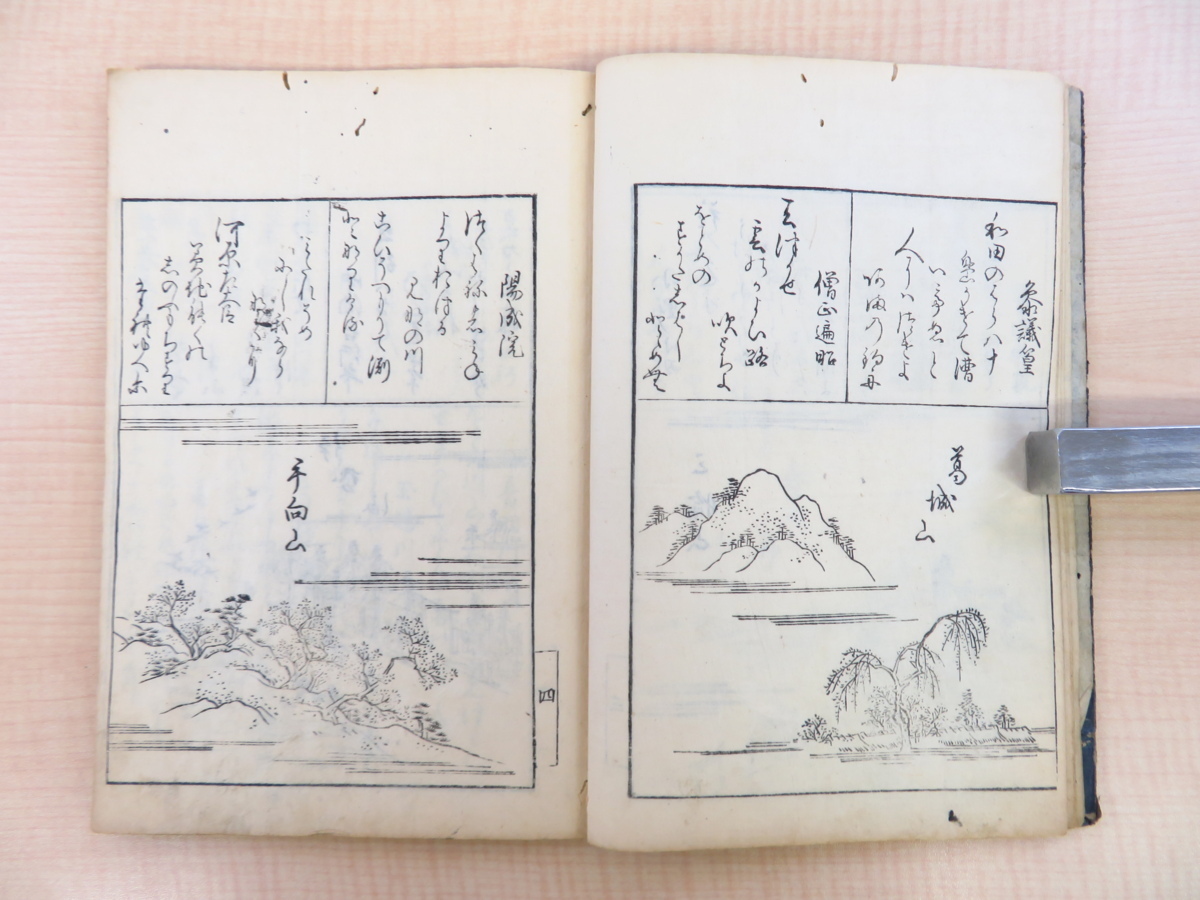 参議篁
和田のはら八十
島かけて漕
いてぬと
人にハつけよ
あまの釣舟
僧正遍昭
天津かせ
雲のかよひ路
吹とちよ
をとめの
すかたしはし
とゝめむ
葛城山
陽成院
つくはねのみね
よりおつる
みなの川
こひそつもりて淵
となりぬる
みたれそめ
にし我なら
なくに
河原左大臣
みちのくの
しのふもちすり
たれゆへに
手向山
四